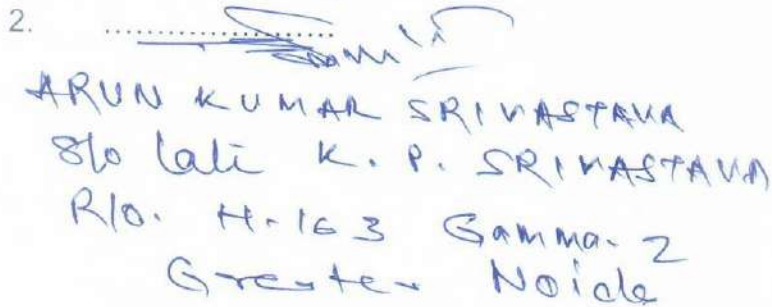 2. ....................
ARUN KUMAR SRIVASTAVA
S/o Late K. P. SRIVASTAVA
R/o. H-163 Gamma-2
Greater Noida